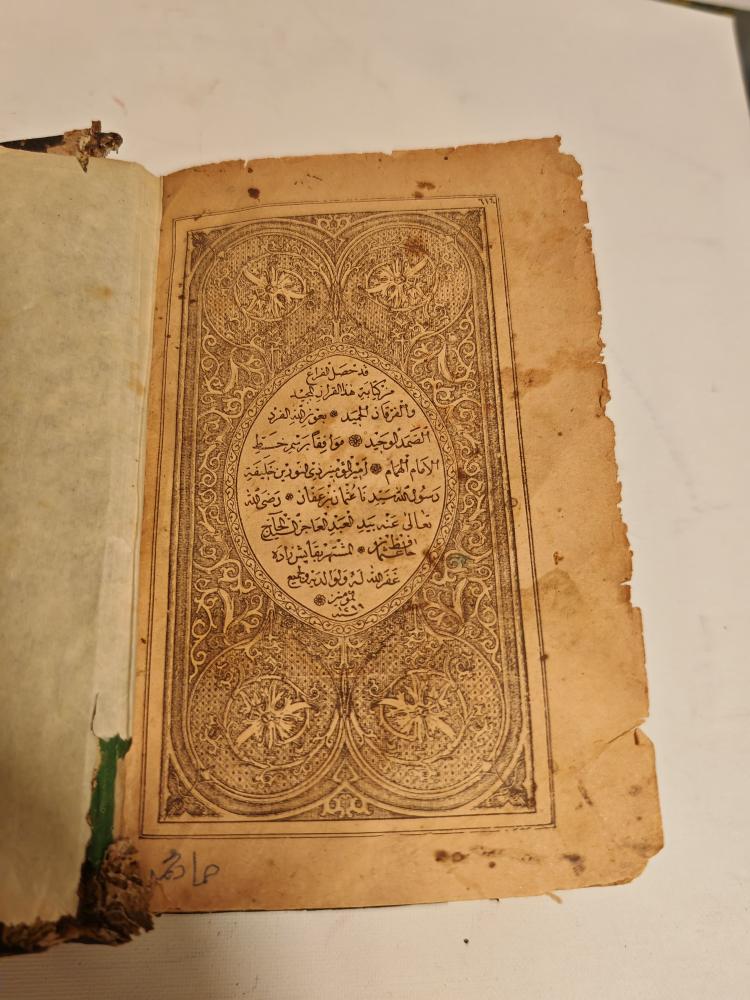 ٦١٦
قد حصل الفراغ
من كتابة هذا القران المجيد
والفرقان الحميد * بعون الله الفرد
الصمد الوحيد * موافقا برسم خط
الامام الهمام * امير المؤمنين ذى النورين خليفة
رسول الله سيدنا عثمان بن عفان * رضى الله
تعالى عنه بيد العبد العاجز الحاج
حافظ عثمان * المشتهر بقايش زاده
غفر الله له ولوالديه ولجميع
المؤمنين *
سنة